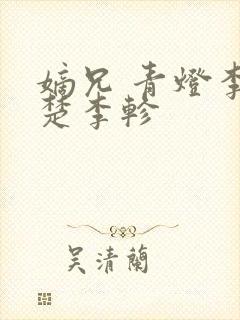 嫡兄 青燈李
楚李軫
吴清蘭